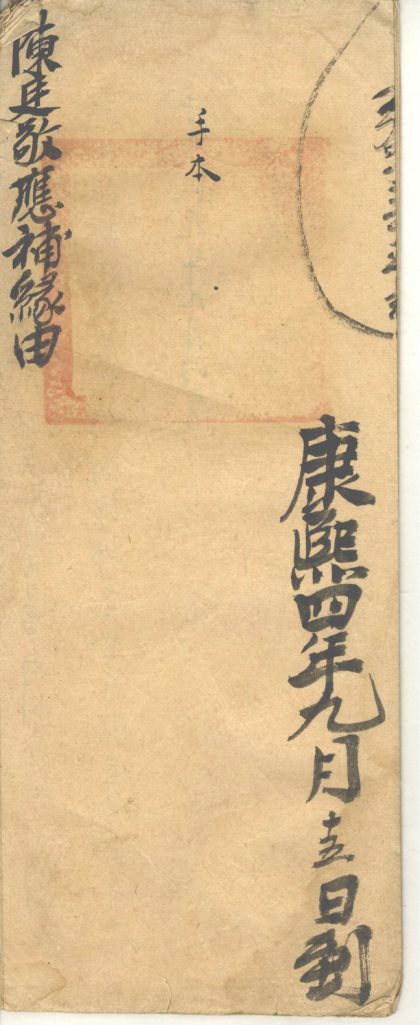 康熙四年九月十五日到
手本
陳建敬應補緣由